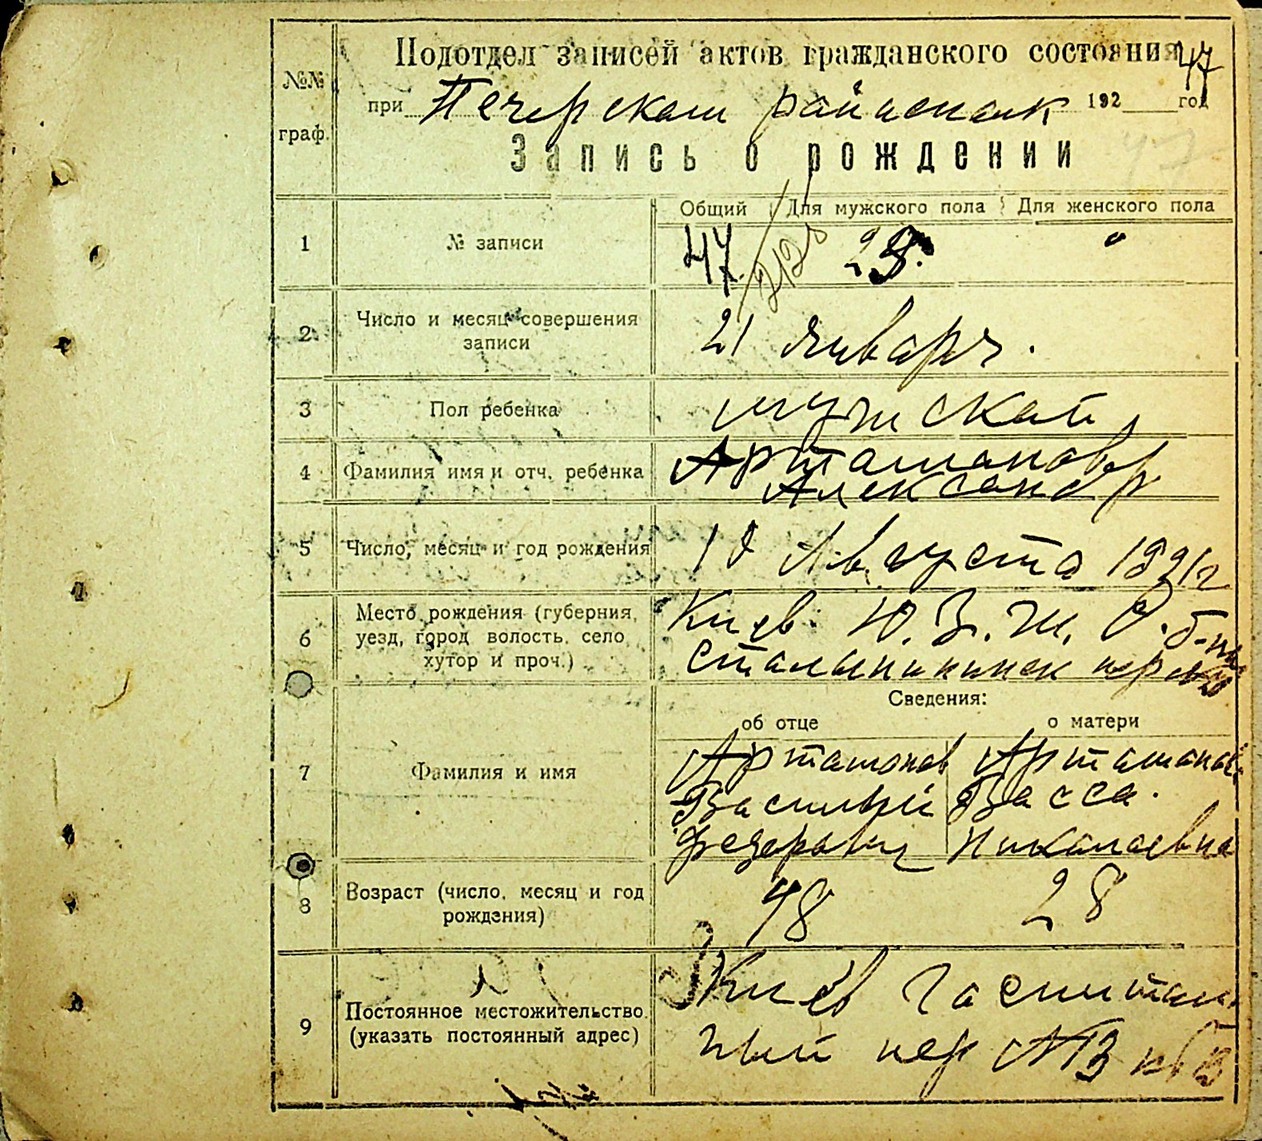 Подотдел записей актов гражданского состояния
47
№№ граф.
при Печерском райисполк 192 год
47
Запись о рождении
Общий Для мужского пола Для женского пола
1 № записи 47. 28. "
2 Число и месяц совершения
записи
21 января.
3 Пол ребенка мужской
4 Фамилия имя и отч. ребенка Артамонов
Александр
5 Число, месяц и год рождения 10 Августа 1921 г
6 Место рождения (губерния,
уезд, город волость, село
хутор и проч.)
Киев. Ю.З.Ж.
Сведения:
об отце о матери
7 Фамилия и имя
Артамонов Артамонова
Василий Васса.
Федорович Николаевна
8 Возраст (число, месяц и год
рождения)
48 28
9 Постоянное местожительство.
(указать постоянный адрес)
Киев Госпиталь
ный пер